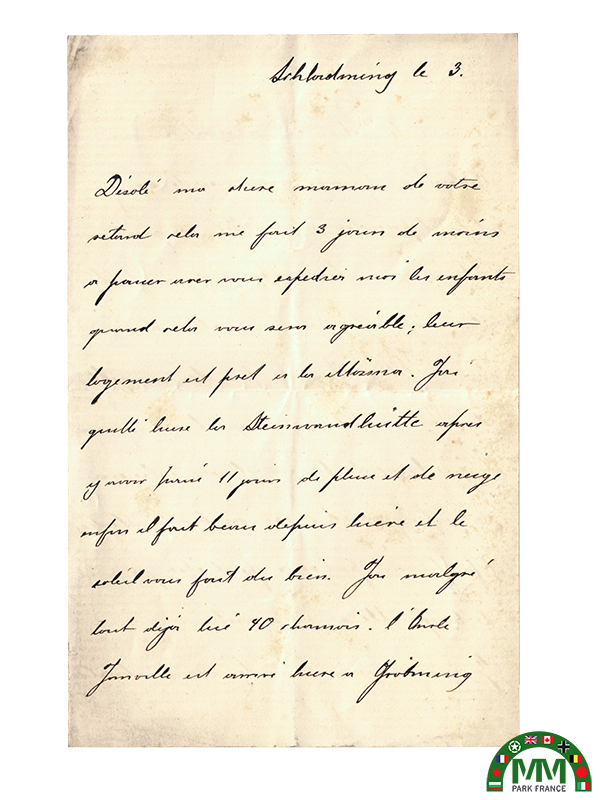 Schladming le 3.
Désolé ma chere maman de votre
retard cela me fait 3 jours de moins
a passer avec vous expediez moi les enfants
quand cela vous sera agréable; leur
logement est pret a la
J'ai
quitté hiere la Steinwandhütte apres
y avoir passé 11 jours de pluie et de neige
enfin il fait beau depuis hière et le
soleil vous fait du bien. J'ai malgré
tout déja tué 40 chamois. l'Oncle
Joinville est arrivé hiere a Gröbming
MM
PARK FRANCE